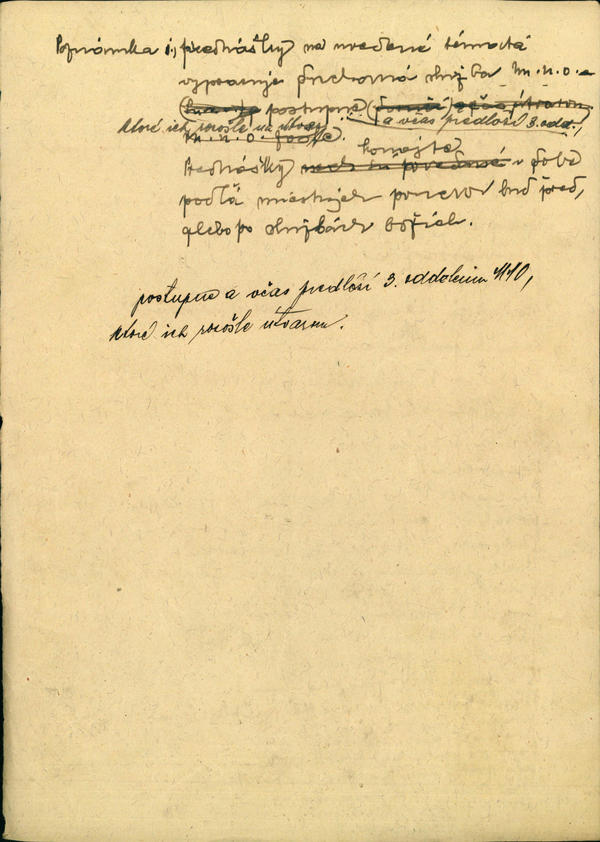 Poznámka 1., prednášky na uvedené témata
vypracuje duchovná služba M.N.O. a
postupne
a včas predloží 3. odd.,
ktoré ich rozošle útvarom.
M.N.O.
konajte
Prednášky v dobe
podľa miestnych pomerov buď pred,
alebo po službách božích.
postupne a včas predloží 3. oddeleniu MNO,
ktoré ich rozošle útvarom.